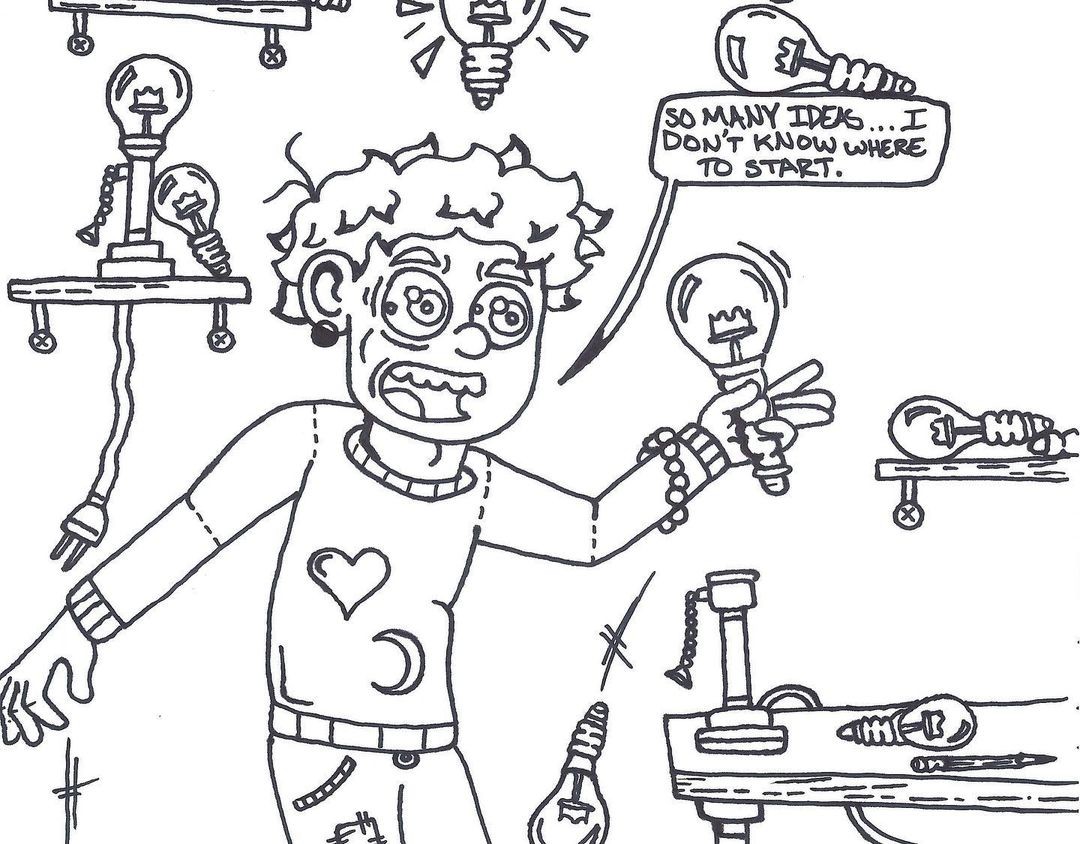 SO MANY IDEAS...I
DON'T KNOW WHERE
TO START.